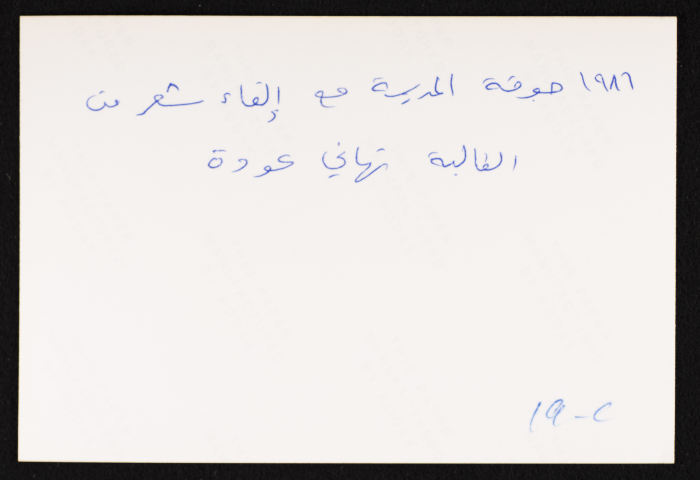 ١٩٨٦ جوقة المدرسة مع إلقاء شعر من
الطالبة تهاني عودة
١٩-٢